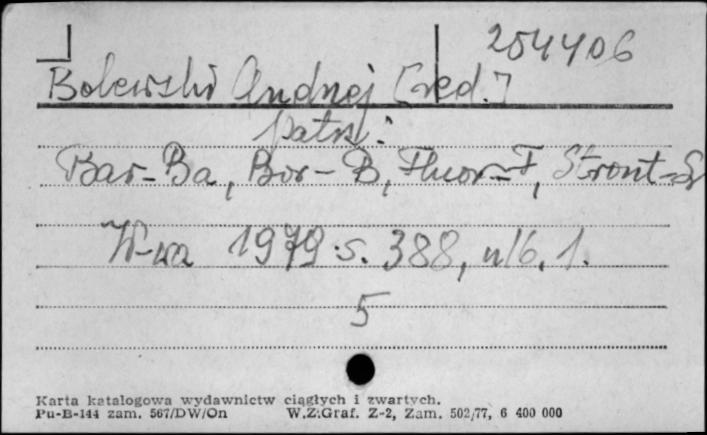 204406
Bolewski Andrzej [red.]
patrz:
Bar-Ba, Bor-B, Fluor-F, Stront-Sr
W-wa 1979 s. 388, nlb. 1.
5
Karta katalogowa wydawnictw ciągłych i zwartych.
Pu-B-144 zam. 567/DW/On W.Z.Graf. Z-2, Zam. 502/77, 6 400 000